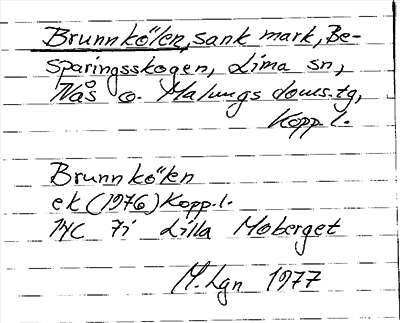 Brunnkölen, sank mark, Be-
sparingsskogen, Lima sn,
Nås o. Malungs doms.tg,
Kopp.l.
Brunnkölen
ek (1976) Kopp.l.
14C 7i Lilla Moberget
M.Lgn 1977